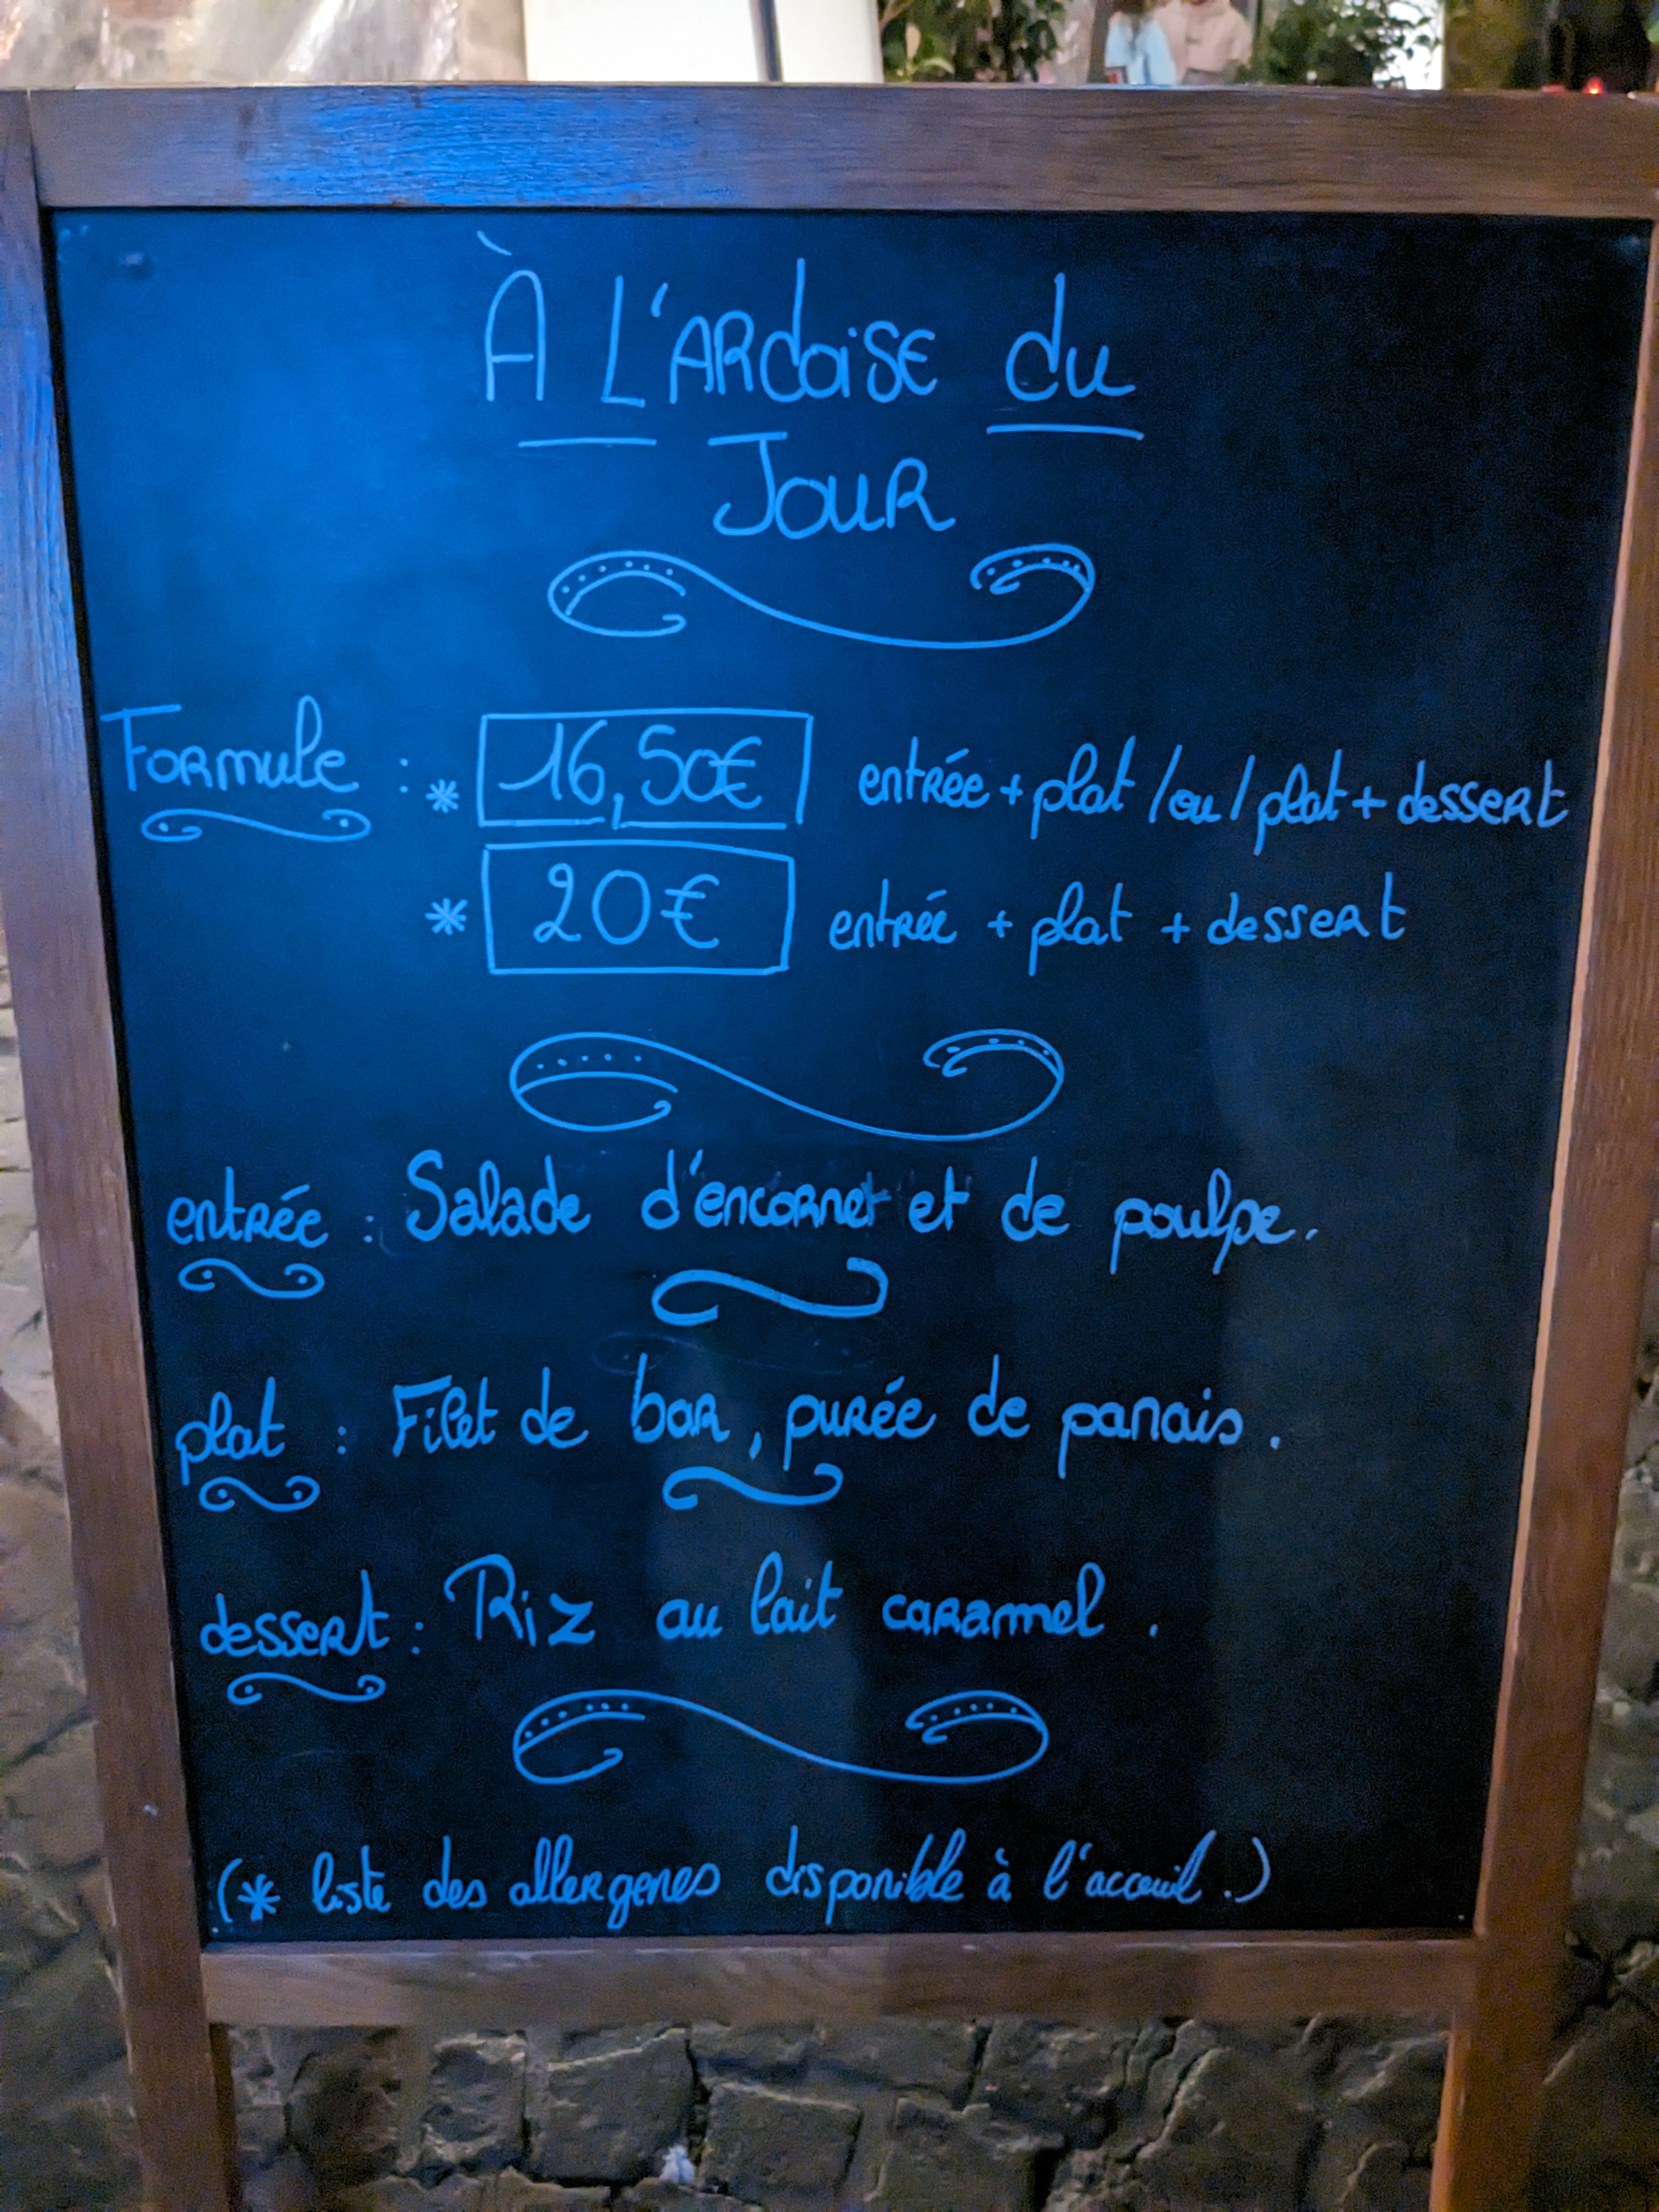 À L'ARdoise du
Jour
Formule : * 16,50€ entrée + plat / ou / plat + dessert
* 20€ entrée + plat + dessert
entrée : Salade d'encornet et de poulpe.
plat : Filet de bar, purée de panais.
dessert : Riz au lait caramel.
(* liste des allergenes disponible à l'acceuil.)